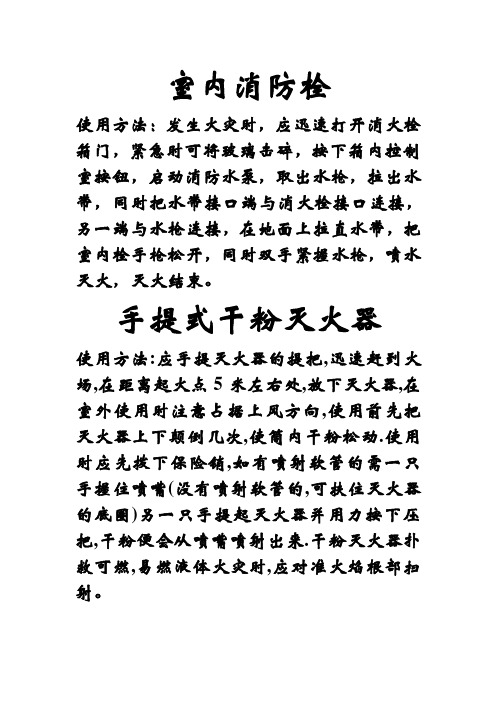 室内消防栓
使用方法：发生火灾时，应迅速打开消火栓
箱门，紧急时可将玻璃击碎，按下箱内控制
室按钮，启动消防水泵，取出水枪，拉出水
带，同时把水带接口端与消火栓接口连接，
另一端与水枪连接，在地面上拉直水带，把
室内栓手枪松开，同时双手紧握水枪，喷水
灭火，灭火结束。
手提式干粉灭火器
使用方法:应手提灭火器的提把,迅速赶到火
场,在距离起火点5米左右处,放下灭火器,在
室外使用时注意占据上风方向,使用前先把
灭火器上下颠倒几次,使筒内干粉松动.使用
时应先拔下保险销,如有喷射软管的需一只
手握住喷嘴(没有喷射软管的,可扶住灭火器
的底圈)另一只手提起灭火器并用力按下压
把,干粉便会从喷嘴喷射出来.干粉灭火器扑
救可燃,易燃液体火灾时,应对准火焰根部扫
射。